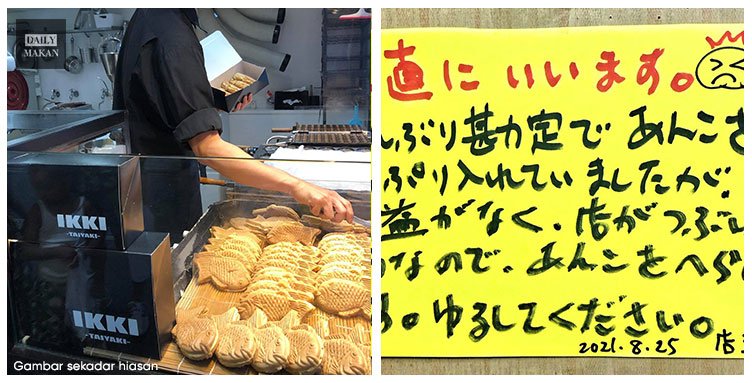 DAILY
MAKAN
IKKI
-TAIYAKI-
IKKI
-TAIYAKI-
Gambar sekadar hiasan
直にいいます。
んぶり勘定で あんこを
ぷり入れていましたが、
益がなく、店がつぶし
なので、あんこをへら
。ゆるしてください。
2021.8.25 店